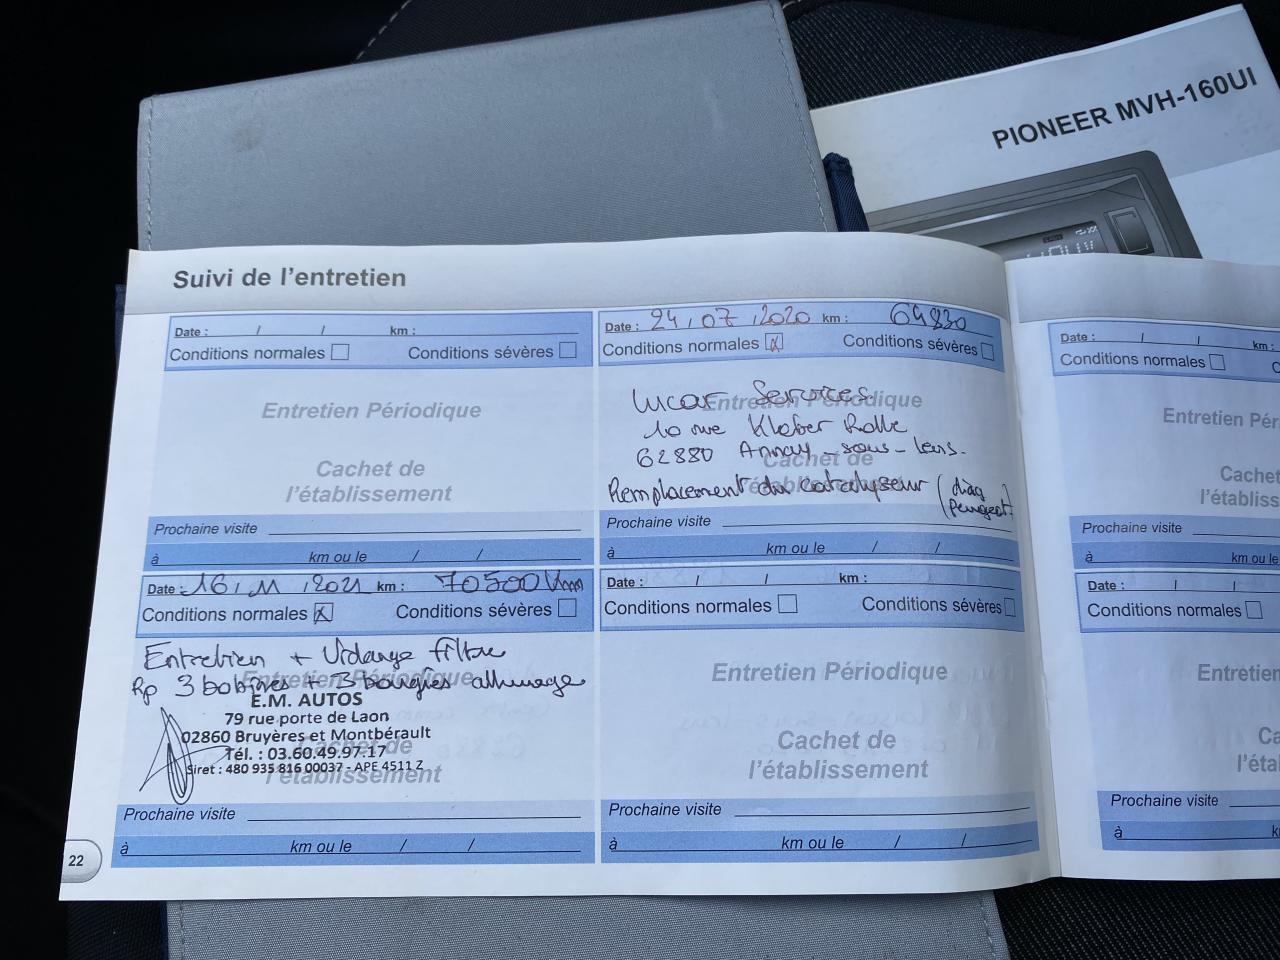 PIONEER MVH-160UI
Suivi de l'entretien
Date : / / km :
Conditions normales Conditions sévères
Entretien Périodique
Cachet de
l'établissement
Prochaine visite
à km ou le / /
Date : 24 / 07 / 2020 km : 64830
Conditions normales X Conditions sévères
Entretien Périodique
Cachet de
l'établissement
Lucar Services
10 rue Kleber Rolle
62880 Annay-sous-Lens.
Remplacement du catalyseur (diag
Peugeot)
Prochaine visite
à km ou le / /
Date : 16 / 11 / 2021 km : 70500 km
Conditions normales X Conditions sévères
Entretien + Vidange filtre
Entretien Périodique
Rp 3 bobines + 3 bougies allumage
E.M. AUTOS
79 rue porte de Laon
02860 Bruyères et Montbérault
Cachet de
Tél. : 03.60.49.97.17
Siret : 480 935 816 00037 - APE 4511 Z
l'établissement
Prochaine visite
à km ou le / /
Date : / / km :
Conditions normales Conditions sévères
Entretien Périodique
Cachet de
l'établissement
Prochaine visite
à km ou le / /
22
Date : / / km :
Conditions normales C
Entretien Pér
Cachet
l'établiss
Prochaine visite
à km ou le
Date : / /
Conditions normales
Entretien
Ca
l'éta
Prochaine visite
à k